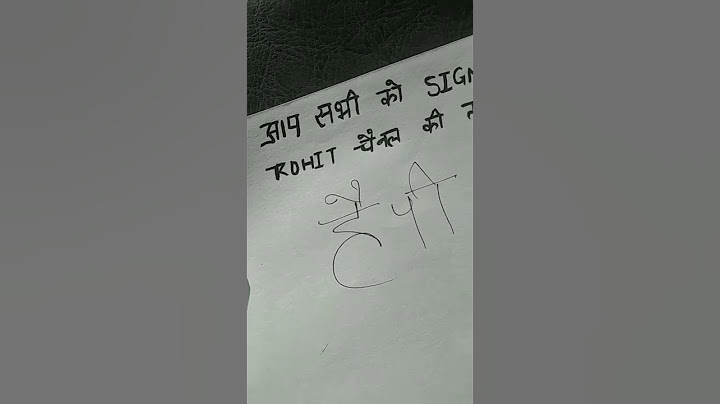 आप सभी को SIGN
ROHIT चैनल की त
हैपी